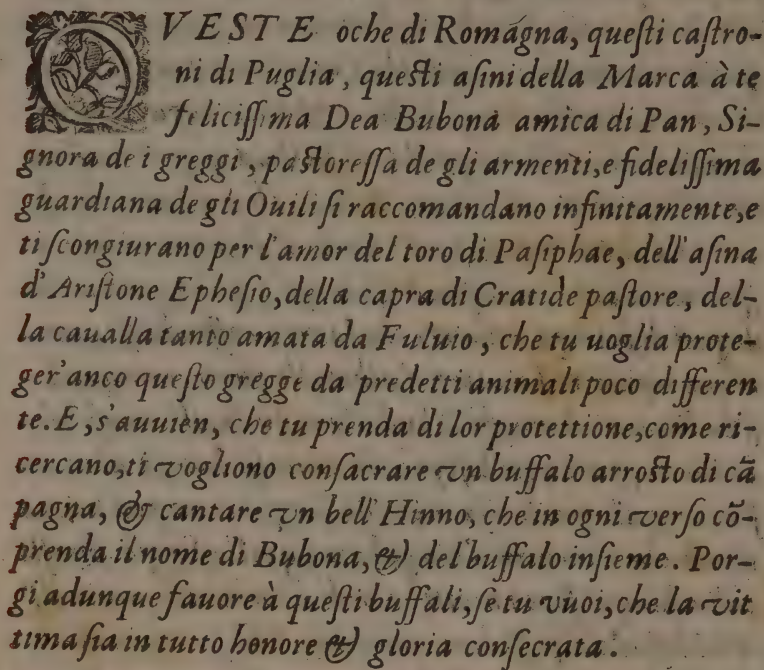 QVESTE oche di Romágna, queſti caſtro-
ni di Puglia, queſti aſini della Marca à te
feliciſſima Dea Bubona amica di Pan, Si-
gnora de i greggi, paſtoreſſa de gli armenti, e fideliſſima
guardiana de gli Ouili ſi raccomandano infinitamente, e
ti ſcongiurano per l'amor del toro di Paſiphae, dell'aſina
d'Ariſtone Epheſio, della capra di Cratide paſtore, del-
la caualla tanto amata da Fuluio, che tu uoglia prote-
ger'anco queſto gregge da predetti animali poco differen
te. E, s'auuien, che tu prenda di lor protettione, come ri-
cercano, ti vogliono conſacrare vn buffalo arroſto di cã
pagna, & cantare vn bell'Hinno, che in ogni verſo cõ-
prenda il nome di Bubona, & del buffalo inſieme. Por-
gi adunque fauore à queſti buffali, ſe tu vuoi, che la vit
tima ſia in tutto honore & gloria conſecrata.